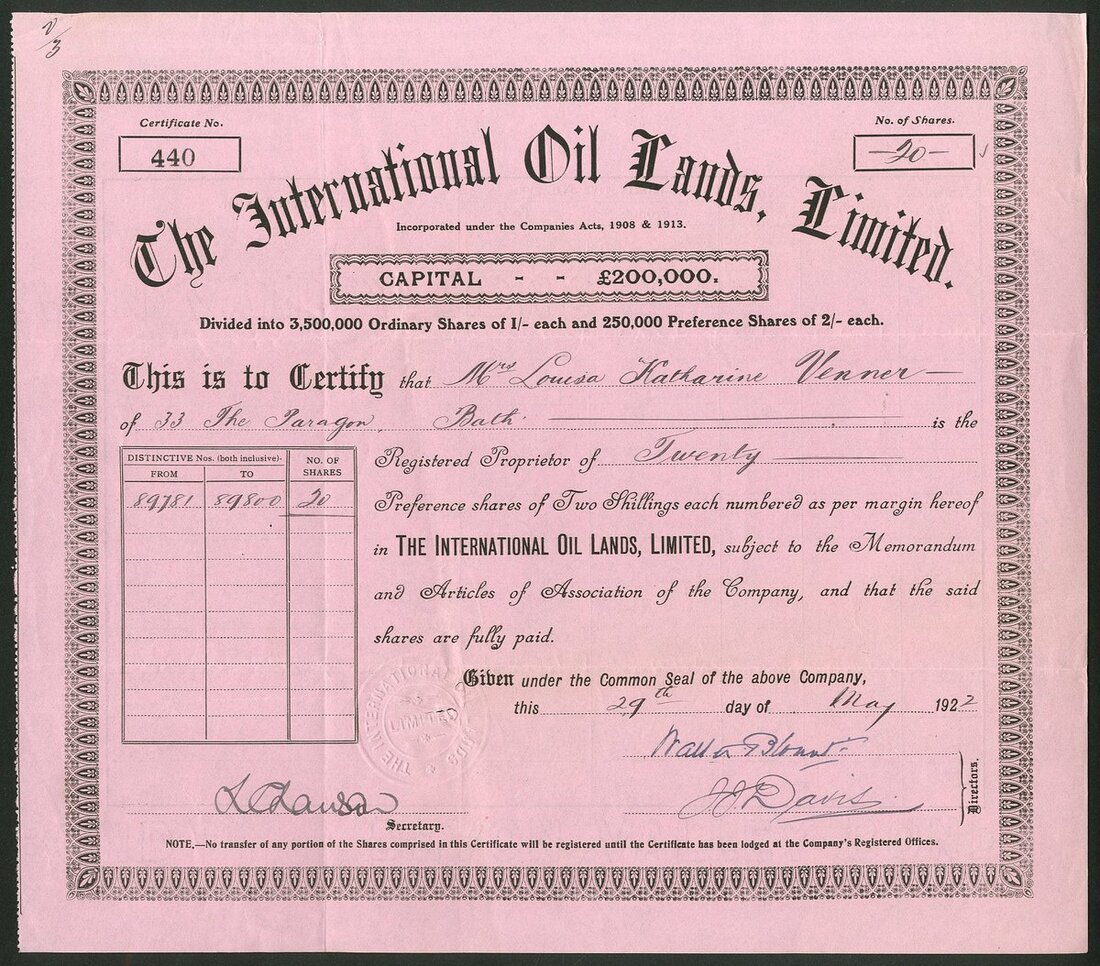 2/3
Certificate No.
440
No. of Shares.
-20-
The International Oil Lands, Limited.
Incorporated under the Companies Acts, 1908 & 1913.
CAPITAL - - £200,000.
Divided into 3,500,000 Ordinary Shares of 1/- each and 250,000 Preference Shares of 2/- each.
This is to Certify that Mrs Louisa Katharine Venner
of 33 The Paragon, Bath. is the
DISTINCTIVE Nos. (both inclusive). NO. OF SHARES
FROM TO
89781 89800 20
Registered Proprietor of Twenty
Preference shares of Two Shillings each numbered as per margin hereof
in THE INTERNATIONAL OIL LANDS, LIMITED, subject to the Memorandum
and Articles of Association of the Company, and that the said
shares are fully paid.
Given under the Common Seal of the above Company,
this 29th day of May 1922
THE INTERNATIONAL OIL LANDS
LIMITED
Walter Blount
J J Davis
Directors.
Secretary.
NOTE.—No transfer of any portion of the Shares comprised in this Certificate will be registered until the Certificate has been lodged at the Company's Registered Offices.